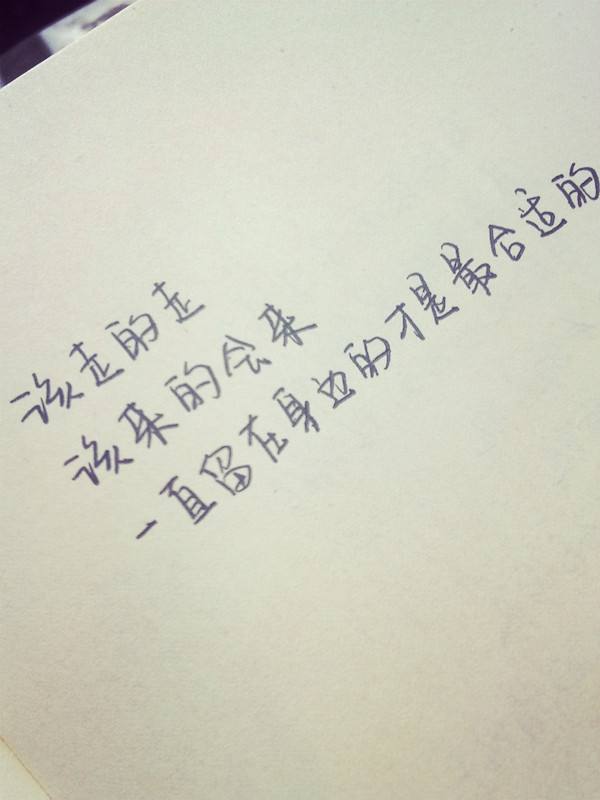 该走的走
该来的会来
一直留在身边的才是最合适的